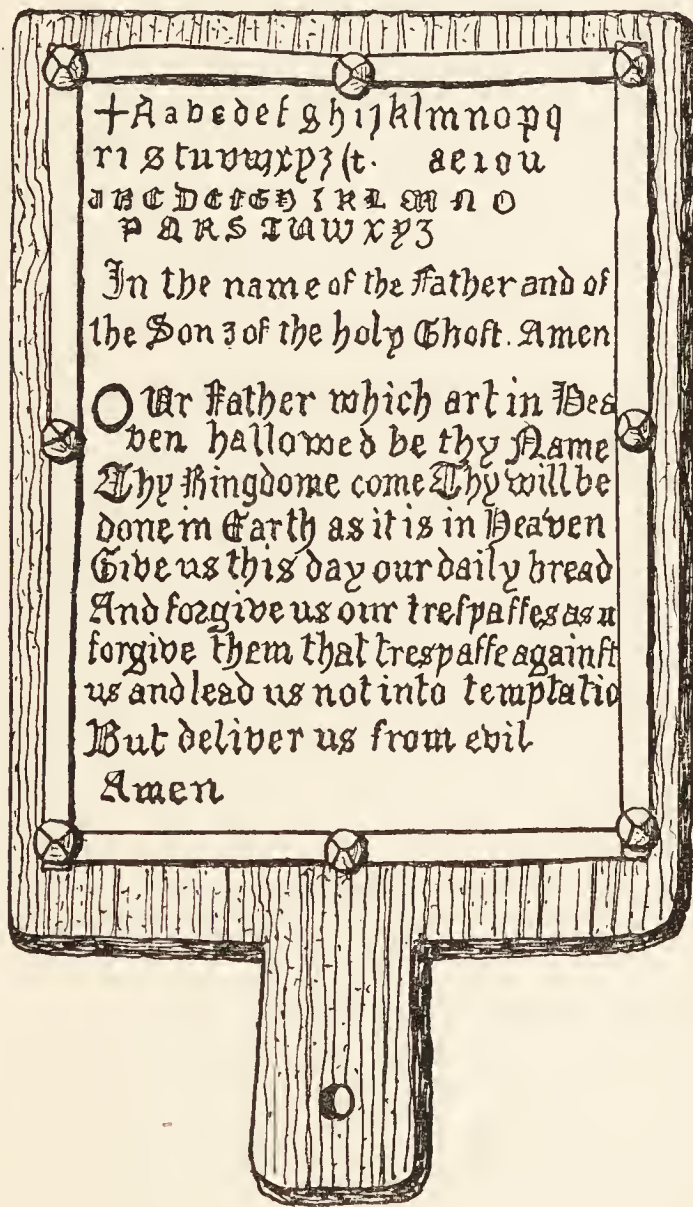 +Aabcdefghijklmnopq
rıstuvwxyz(t. aeıou
ABCDEFGHIKLMNO
PQRSTUWXYZ
In the name of the Father and of
the Son ⁊ of the holy Ghoſt. Amen
OUr Father which art in Hea
ven hallowed be thy Name
Thy Kingdome come Thy will be
done in Earth as it is in Heaven
Give us this day our daily bread
And forgive us our treſpaſſes as w
forgive them that treſpaſſe againſt
us and lead us not into temptatio
But deliver us from evil
Amen